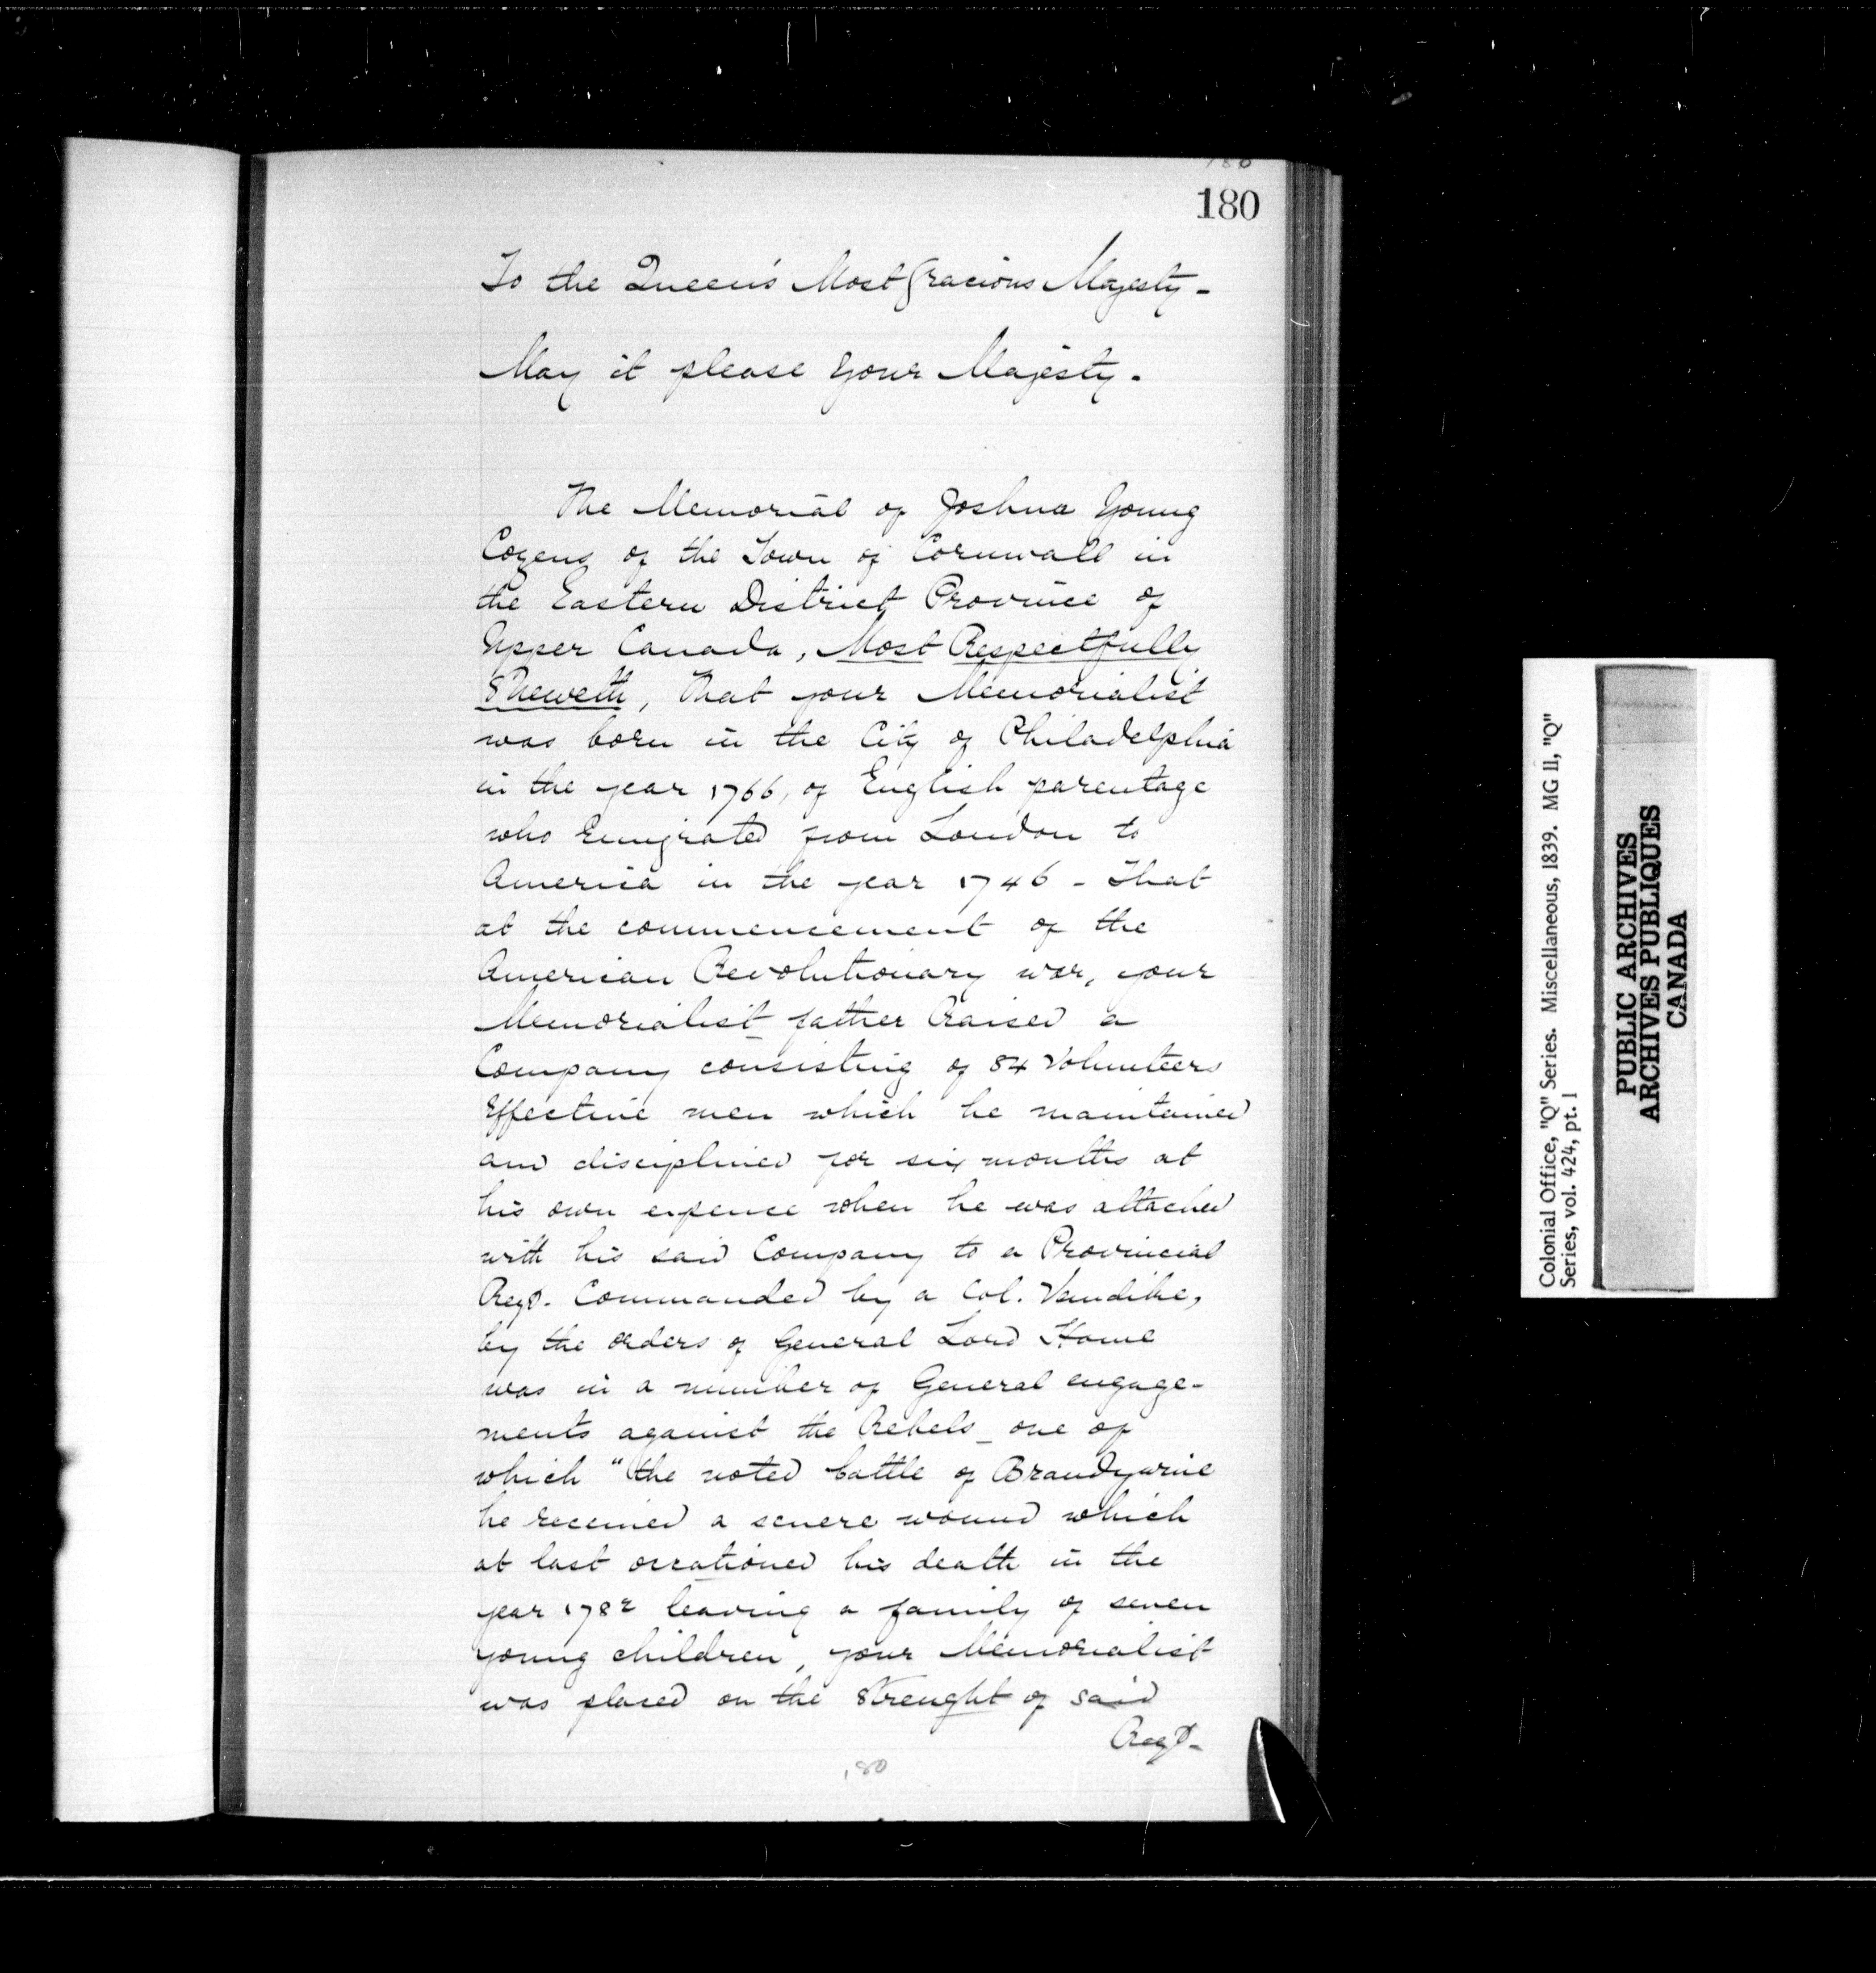 180
180
To the Queen's Most Gracious Majesty -
May it please your Majesty -
The Memorial of Joshua Young
Cozens of the Town of Cornwall in
the Eastern District Province of
Upper Canada, Most Respectfully
Sheweth, That your Memorialist
was born in the City of Philadelphia
in the year 1766, of English parentage
who Emigrated from London to
America in the year 1746 - That
at the commencement of the
American Revolutionary war, your
Memorialist father Raised a
Company consisting of 84 Volunteers
Effective men which he maintained
and disciplined for six months at
his own expence when he was attached
with his said Company to a Provincial
Regt. Commanded by a Col. Vandike,
by the orders of General Lord Howe
was in a number of General engage-
ments against the Rebels - one of
which "the noted battle of Brandywine
he received a severe wound which
at last occationed his death in the
year 1782 leaving a family of seven
young children, your Memorialist
was placed on the strenght of said
Regt-
180
Colonial Office, "Q" Series. Miscellaneous, 1839. MG 11, "Q"
Series, vol. 424, pt. 1
PUBLIC ARCHIVES
ARCHIVES PUBLIQUES
CANADA